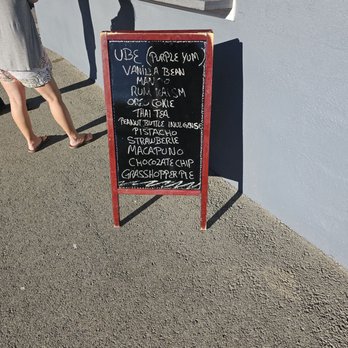 UBE (PURPLE YUM)
VANILLA BEAN
MANGO
RUM RAISM
OREO COOKIE
THAI TEA
PEANUT BUTTLE
PISTACHO
STRAWBERIE
MACAPUNO
CHOCOLATE CHIP
GRASSHOPPER PIE